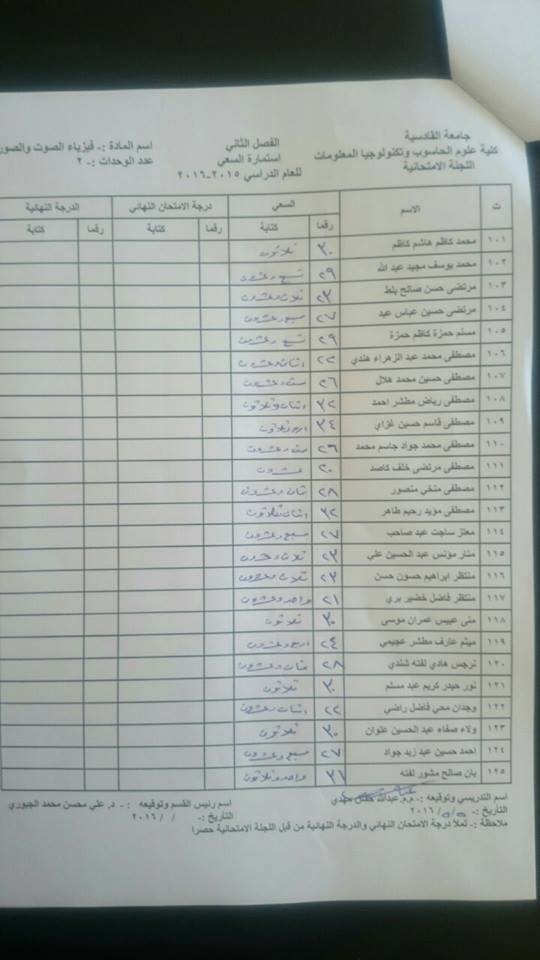 جامعة القادسية
كلية علوم الحاسوب وتكنولوجيا المعلومات
اللجنة الامتحانية
الفصل الثاني
استمارة السعي
للعام الدراسي ٢٠١٥-٢٠١٦
اسم المادة :- فيزياء الصوت والصور
عدد الوحدات :- ٢
ت الاسم السعي درجة الامتحان النهائي الدرجة النهائية
رقما كتابة رقما كتابة رقما كتابة
١٠١ محمد كاظم هاشم كاظم ٣٠ ثلاثون
١٠٢ محمد يوسف مجيد عبد الله ٢٩ تسع وعشرون
١٠٣ مرتضى حسن صالح بلط ٢٣ ثلاث وعشرون
١٠٤ مرتضى حسين عباس عبد ٢٧ سبع وعشرون
١٠٥ مسلم حمزة كاظم حمزة ٢٩ تسع وعشرون
١٠٦ مصطفى محمد عبد الزهراء هندي ٢٢ اثنان وعشرون
١٠٧ مصطفى حسين محمد هلال ٢٦ ست وعشرون
١٠٨ مصطفى رياض مطشر احمد ٣٢ اثنان وثلاثون
١٠٩ مصطفى قاسم حسين غزاي ٣٤ اربع وثلاثون
١١٠ مصطفى محمد جواد جاسم محمد ٢٦ ست وعشرون
١١١ مصطفى مرتضى خلف كاصد ٢٠ عشرون
١١٢ مصطفى منخي منصور ٢٨ ثمان وعشرون
١١٣ مصطفى مؤيد رحيم طاهر ٣٢ اثنان وثلاثون
١١٤ معتز ساجت عبد صاحب ٢٧ سبع وعشرون
١١٥ منار مؤنس عبد الحسين علي ٢٣ ثلاث وعشرون
١١٦ منتظر ابراهيم حسون حسن ٢٣ ثلاث وعشرون
١١٧ منتظر فاضل خضير بري ٢١ واحد وعشرون
١١٨ منى عبيس عمران موسى ٣٠ ثلاثون
١١٩ ميثم عارف مطشر عجيمي ٢٤ اربع وعشرون
١٢٠ نرجس هادي لفته شندي ٢٨ ثمان وعشرون
١٢١ نور حيدر كريم عبد مسلم ٣٠ ثلاثون
١٢٢ وجدان محي فاضل راضي ٢٢ اثنان وعشرون
١٢٣ ولاء صفاء عبد الحسين علوان ٣٠ ثلاثون
١٢٤ احمد حسين عبد زيد جواد ٢٧ سبع وعشرون
١٢٥ بان صالح مشور لفته ٣١ واحد وثلاثون
اسم التدريسي وتوقيعه :- م.م. عبدالله مهدي اسم رئيس القسم وتوقيعه :- د. علي محسن محمد الجبوري
التاريخ :- ٢٠١٦ التاريخ :- / / ٢٠١٦
ملاحظة :- تملأ درجة الامتحان النهائي والدرجة النهائية من قبل اللجنة الامتحانية حصرا